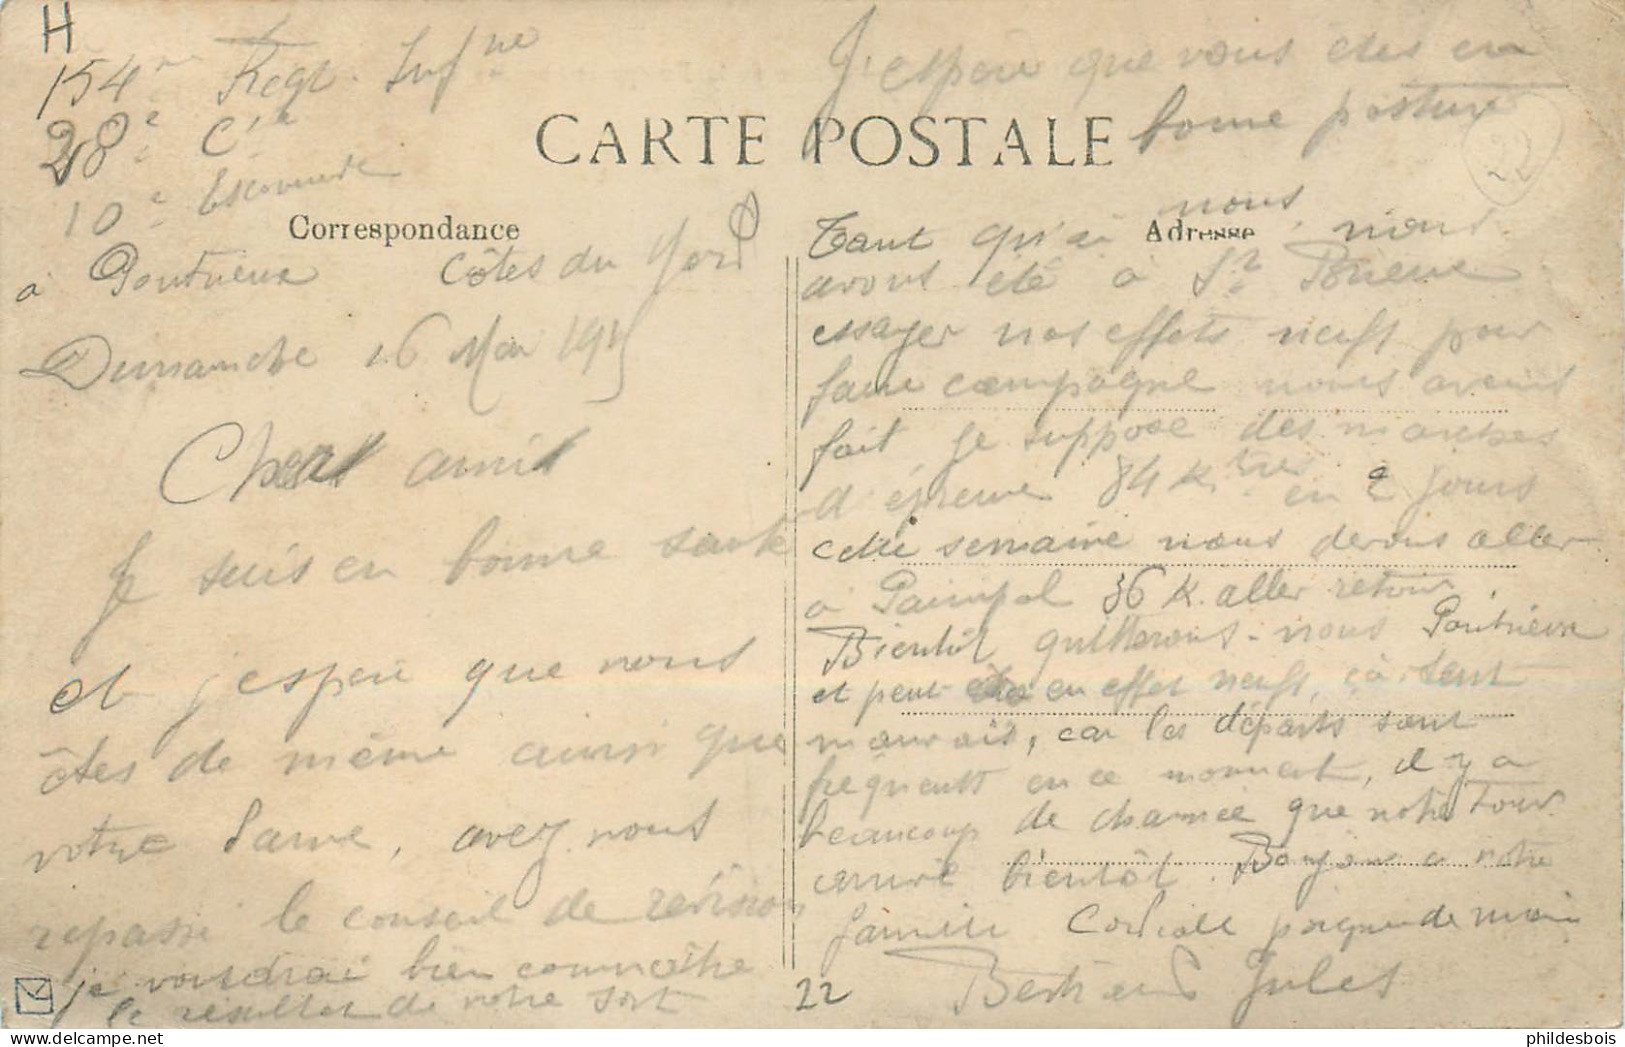 H
154e Regt. Infne
28e Cie
10e Escouade
à Pontrieux Côtes du Nord
Dimanche 16 Mai 1915
Chers amis
Je suis en bonne santé
et j'espère que vous
êtes de même ainsi que
votre Dame, avez vous
repassé le conseil de révision
je voudrai bien connaître
le résultat de votre sort
CARTE POSTALE
Correspondance
Adresse
J'espère que vous êtes en
bonne posture
22
Tant qu'à nous, nous
avons été à St Brieuc
essayer nos effets neufs pour
faire campagne nous avons
fait je suppose des marches
d'épreuve 84 Ktres en 2 jours
cette semaine nous devons aller
à Paimpol 36 K. aller retour
Bientôt quitterons-nous Pontrieux
et peut être en effet neufs, çà sent
mauvais, car les départs sont
fréquents en ce moment, il y a
beaucoup de chance que notre tour
arrive bientôt. Bonjour à votre
famille Cordiale poignée de main
Bertrand Jules
22
phildesbois